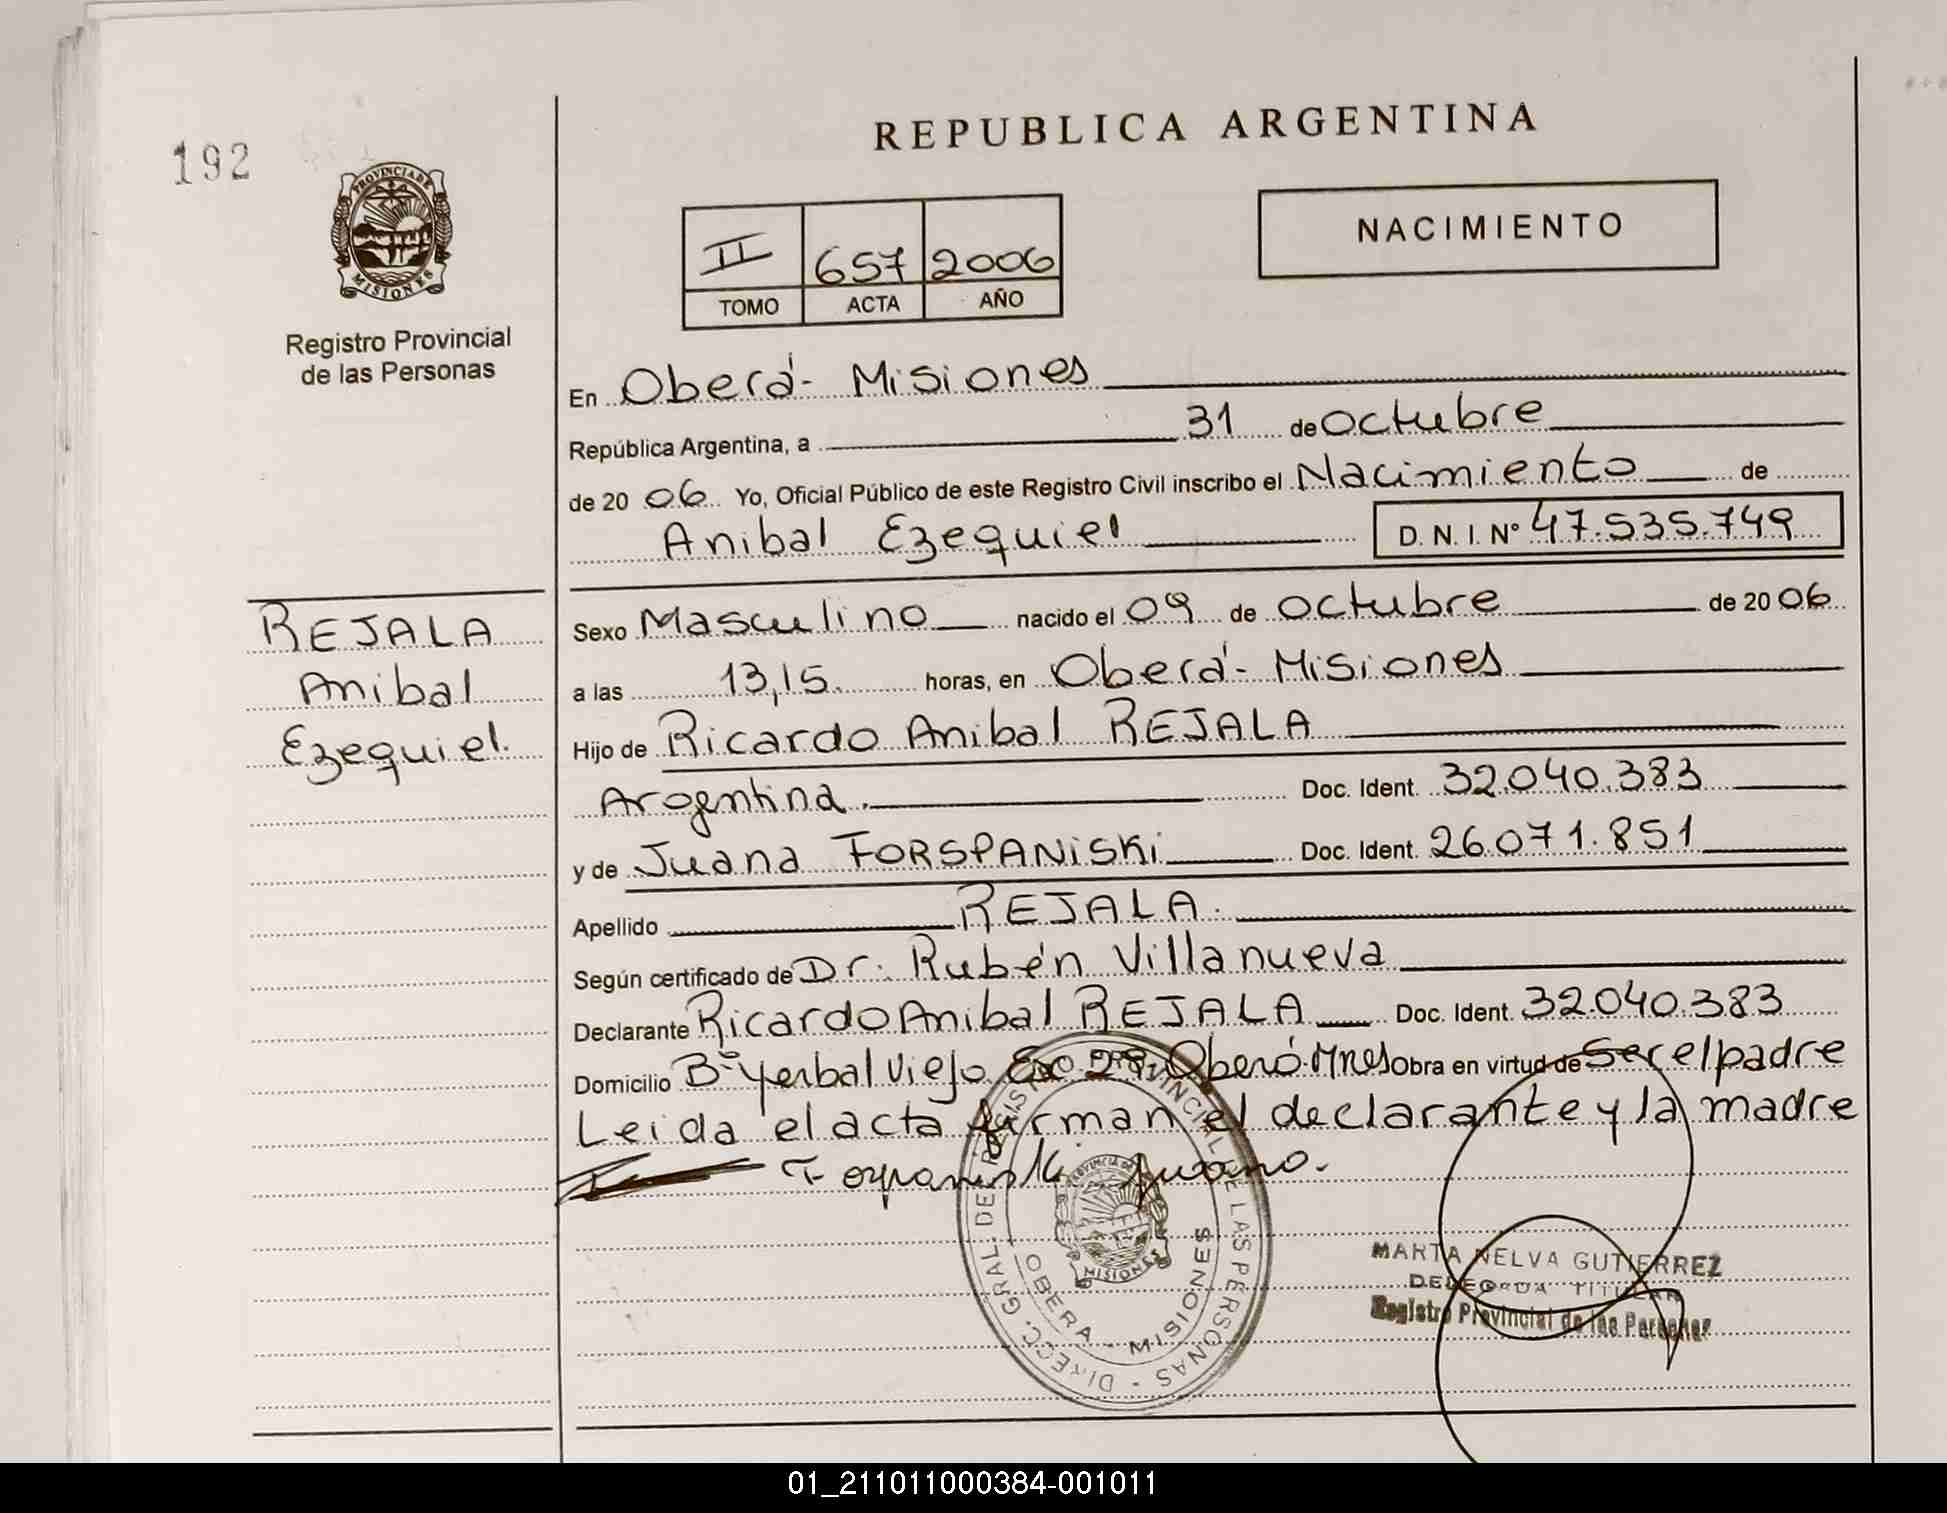 192
REPUBLICA ARGENTINA
PROVINCIA DE
MISIONES
Registro Provincial
de las Personas
II 657 2006
TOMO ACTA AÑO
NACIMIENTO
En Oberá - Misiones
República Argentina, a 31 de Octubre
de 20 06 Yo, Oficial Público de este Registro Civil inscribo el Nacimiento de
Anibal Ezequiel D. N. I. Nº 47.535.749
REJALA
Anibal
Ezequiel.
Sexo Masculino nacido el 09 de Octubre de 20 06
a las 13,15. horas, en Oberá - Misiones
Hijo de Ricardo Anibal REJALA
Argentina. Doc. Ident. 32.040.383
y de Juana FORSPANISKI Doc. Ident. 26.071.851
Apellido REJALA.
Según certificado de Dr. Rubén Villanueva
Declarante Ricardo Anibal REJALA Doc. Ident. 32.040.383
Domicilio Bº Yerbal Viejo Oberá. Mnes Obra en virtud de Ser el padre
Leida el acta firman el declarante y la madre
Juana.
DIRECC. GRAL. DE REGISTRO PROVINCIAL DE LAS PERSONAS
PROVINCIA DE
MISIONES
OBERA - MISIONES
MARTA NELVA GUTIERREZ
DELEGADA TITULAR
Registro Provincial de las Personas
01_211011000384-001011